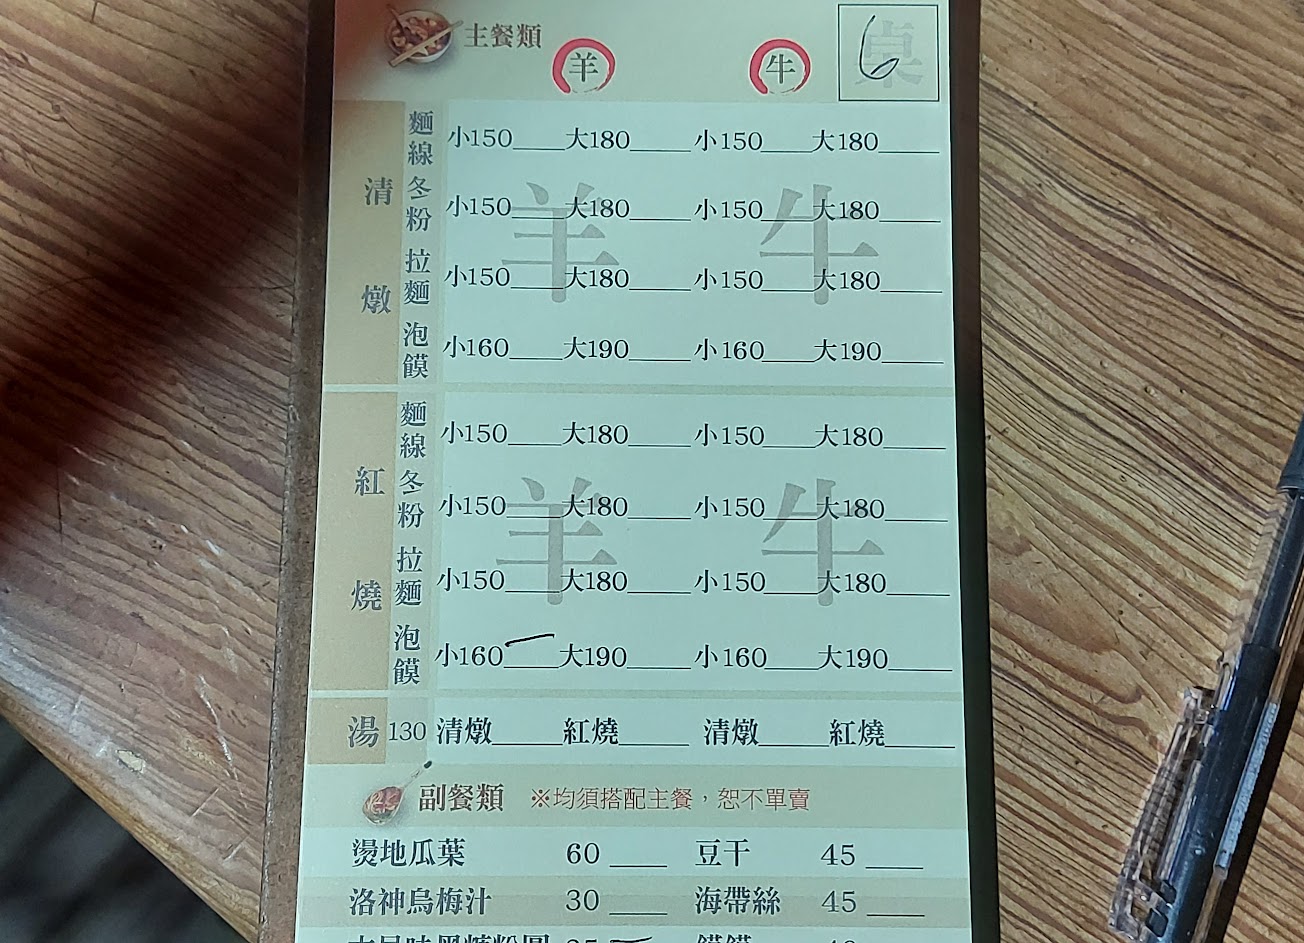 主餐類 羊 牛 桌 6
清燉
麵線 小150____大180____ 小150____大180____
冬粉 小150____大180____ 小150____大180____
拉麵 小150____大180____ 小150____大180____
泡饃 小160____大190____ 小160____大190____
羊 牛
紅燒
麵線 小150____大180____ 小150____大180____
冬粉 小150____大180____ 小150____大180____
拉麵 小150____大180____ 小150____大180____
泡饃 小160____大190____ 小160____大190____
羊 牛
湯 130 清燉____ 紅燒____ 清燉____ 紅燒____
副餐類 ※均須搭配主餐，恕不單賣
燙地瓜葉 60 ____ 豆干 45 ____
洛神烏梅汁 30 ____ 海帶絲 45 ____